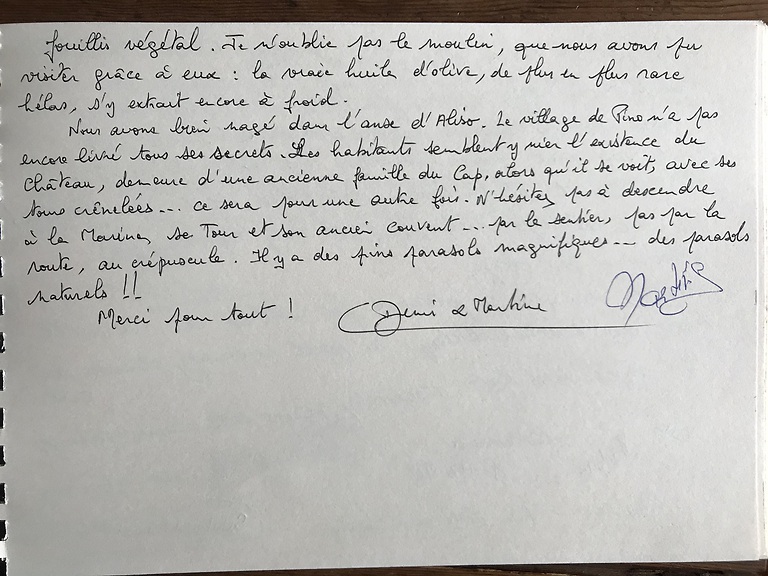 fouillis végétal. Je n'oublie pas le moulin, que nous avons pu
visiter grâce à eux : la vraie huile d'olive, de plus en plus rare
hélas, s'y extrait encore à froid.
Nous avons bien nagé dans l'anse d'Aliso. Le village de Pino n'a pas
encore livré tous ses secrets. Les habitants semblent y nier l'existence du
Château, demeure d'une ancienne famille du Cap, alors qu'il se voit, avec ses
tours crênelées... ce sera pour une autre fois. N'hésitez pas à descendre
à la Marine, sa Tour et son ancien couvent... par le sentier, pas par la
route, au crépuscule. Il y a des pins parasols magnifiques... des parasols
naturels !!
Merci pour tout ! Denis & Martine